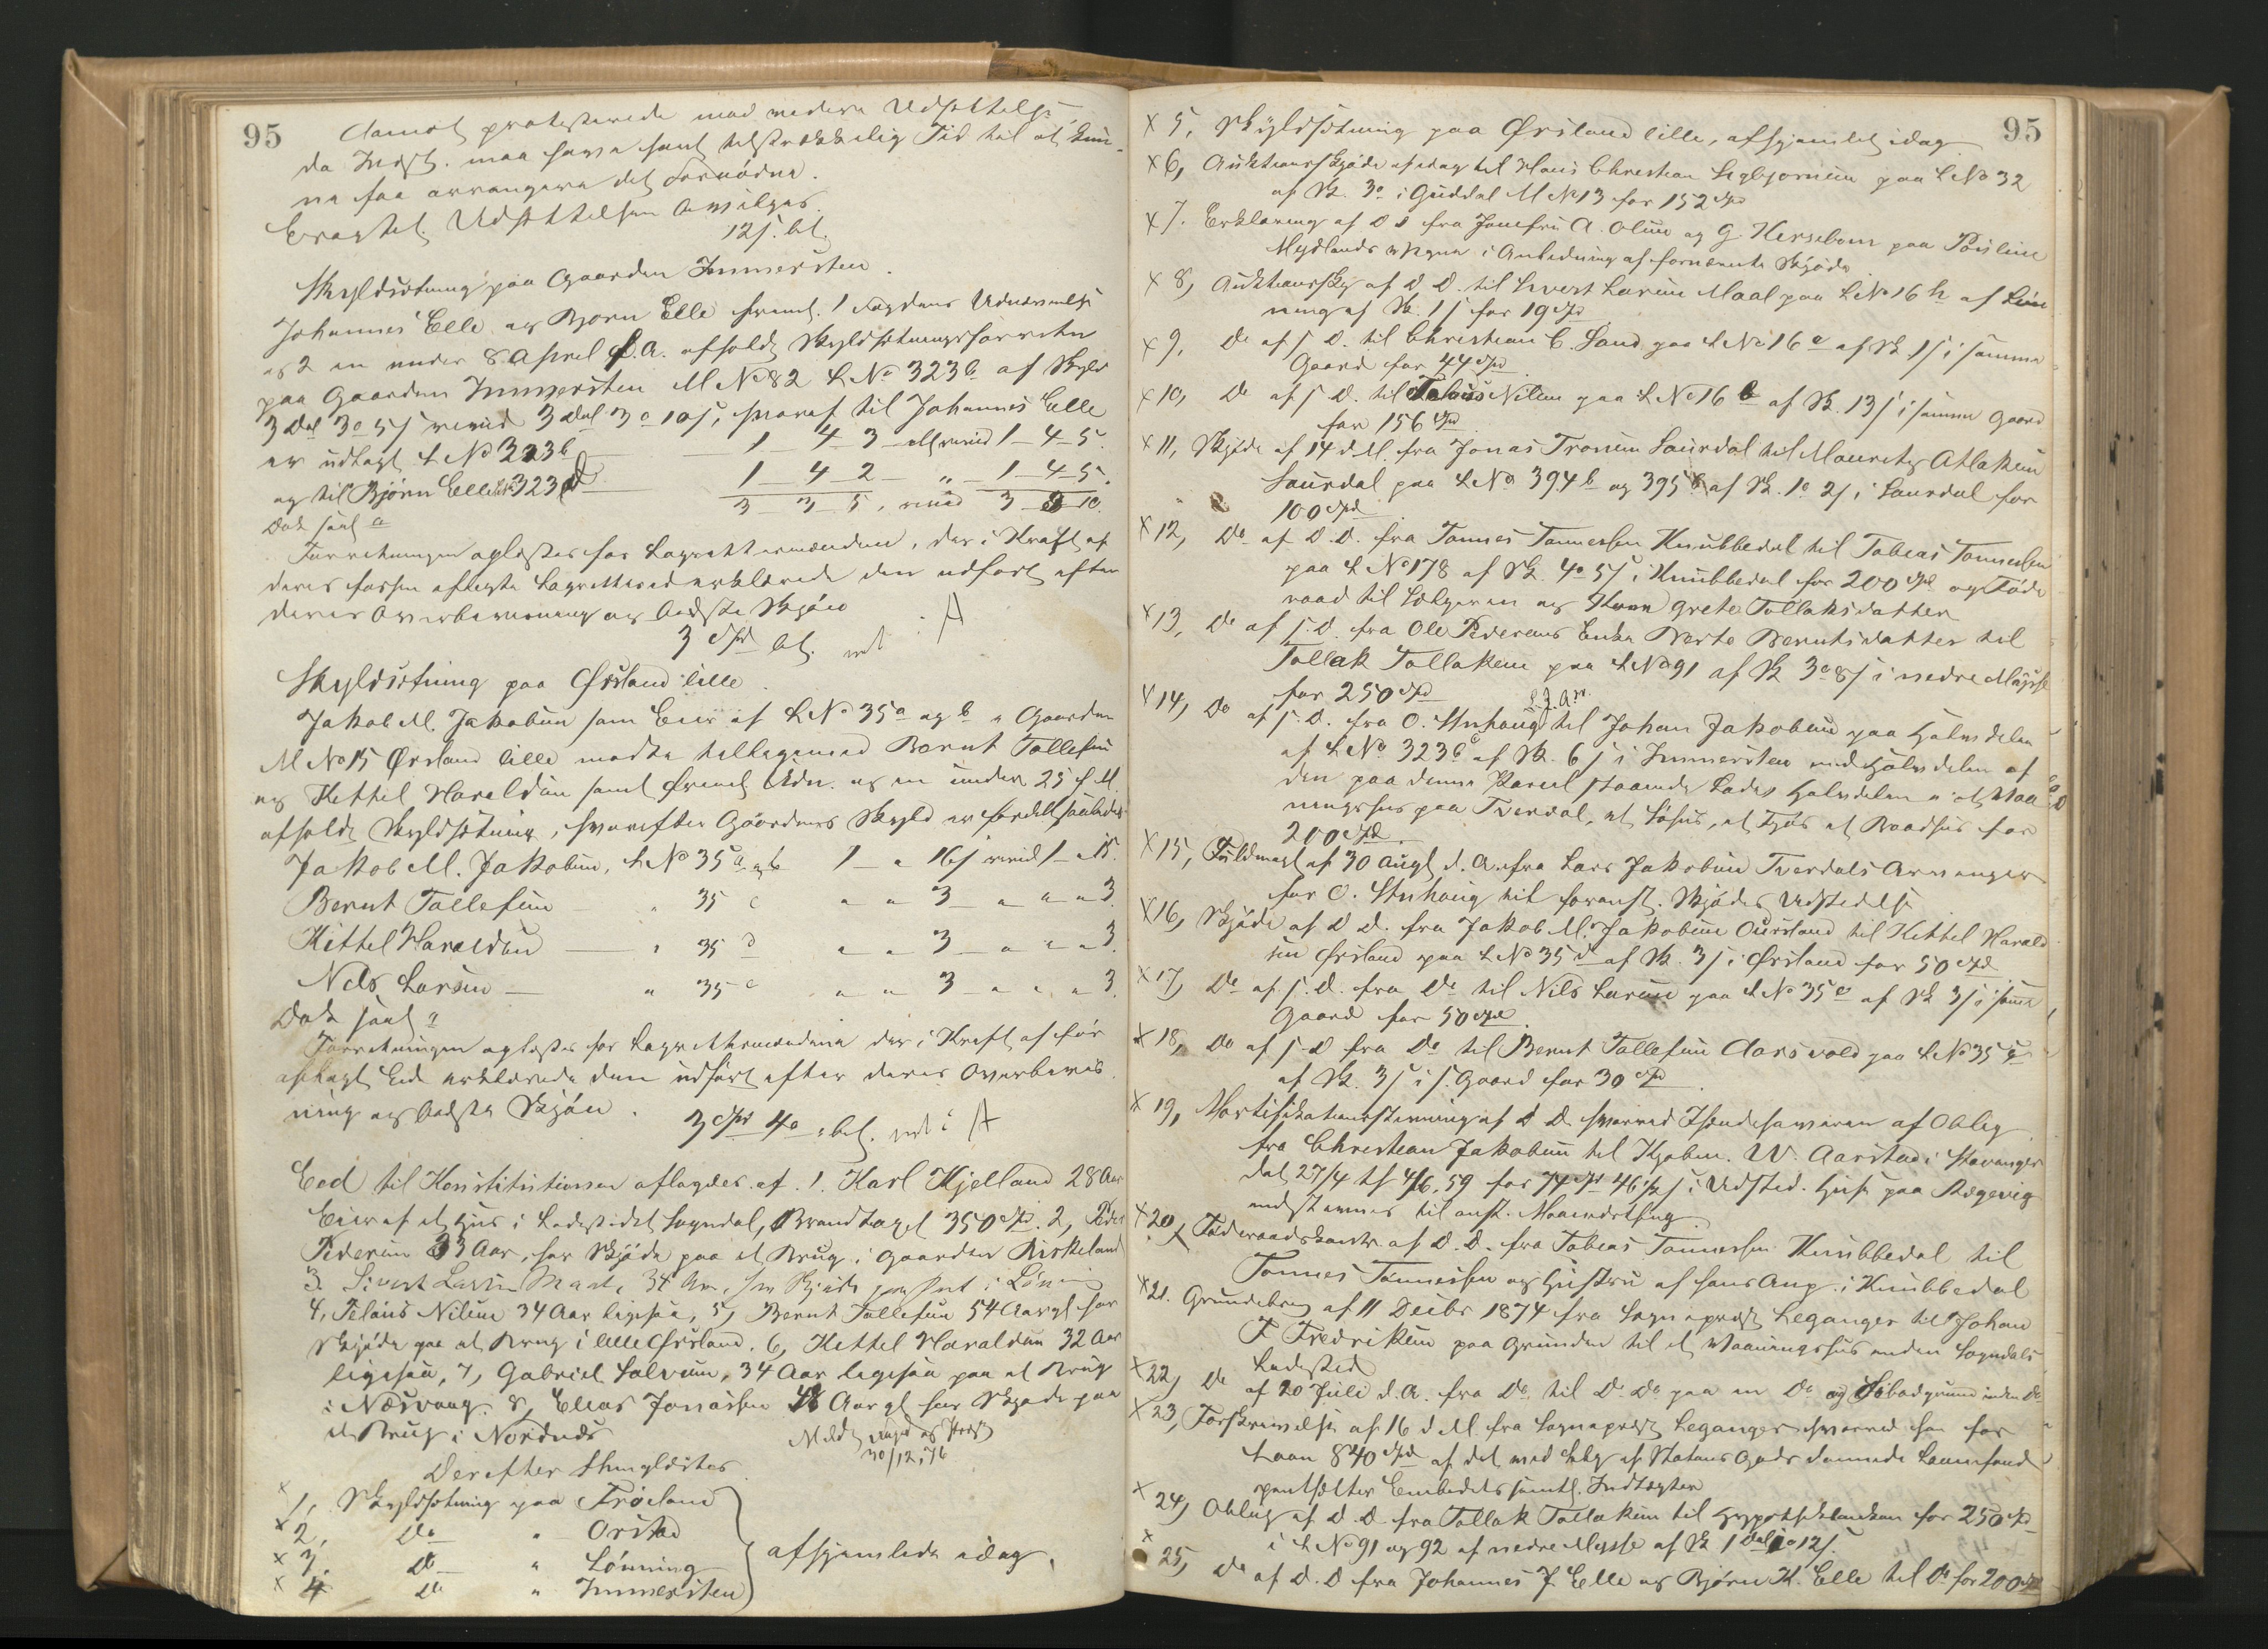 95
Aamot protesterede mod videre Udsættelse
da Indst. maa have havt tilstrækkelig Tid til at kun-
ne faa arrangere det Fornødne.
Eragtet. Udsættelsen bevilges.
12 s. bet.
Skyldsætning paa Gaarden Immersten.
Johannes Elle og Bjørn Elle freml. 1 Fogdens Udnævnelse
og 2 en under 8 April d. A. afholdt Skyldsætningsforretn
paa Gaarden Immersten M No 82 L No 323 b af Skyld
3 Dal 3 o 5 s revid 3 Dal 3 o 10 s, hvoraf til Johannes Elle
er udlagt L No 323 b 1 – 4 – 3 – all revid 1 – 4 – 5.
og til Bjørn Elle 323 d 1 – 4 – 2 „ – 1 – 4 – 5.
3 – 3 – 5, revid 3 – 3 – 10.
Dok saal. a
Forretningen oplæstes for Lagrettemændene, der i Kraft af
deres forhen aflagte Lagretteed erklærede den udført efter
deres Overbevisning og bedste Skjøn
3 Spd bet. A
Skyldsætning paa Ørsland lille.
Jakob M. Jakobsen som Eier af L No 35 a og b i Gaarden
M No 15 Ørsland lille mødte tilligemed Bernt Tollefsen
og Kettel Haraldsen samt freml Udn. og en under 25 f. M.
afholdt Skyldsætning, hvorefter Gaardens Skyld er fordelt saaledes
Jakob M. Jakobsen, L No 35 a og b 1 – „ 16 s revid 1 – „ 15.
Bernt Tollefsen – „ 35 c „ „ 3 – „ „ „ 3.
Kittel Haraldsen – „ 35 d „ „ 3 – „ „ „ 3.
Nils Larsen – „ 35 e „ „ 3 – „ „ „ 3.
Dok saal. a
Forretningen oplæstes for Lagrettemændene der i Kraft af før
aflagt Eed erklærede den udført efter deres Overbevis
ning og bedste Skjøn. 3 Spd 4 o bet. A
Eed til Konstitutionen aflagdes af 1. Karl Kjelland 28 Aar
Eier af et Hus i Ladestedet Sogndal, Brandtaxt 350 Spd. 2, Peder
Pedersen 33 Aar, har Skjøde paa et Brug i Gaarden Birkeland
3. Sivert Larsen Maal, 34 Aar, har Skjøde paa Part i Løning
4, Telaus Nilsen 34 Aar ligesaa, 5, Bernt Tollefsen 54 Aar gl har
Skjøde paa et Brug i lille Ørsland. 6, Kettel Haraldsen 32 Aar
ligesaa, 7, Gabriel Salvesen, 34 Aar ligesaa paa et Brug
i Næsvaag. 8, Elias Jonassen 48 Aar gl har Skjøde paa
et Brug i Nordnæs Meldt Foged og Præst
30/12, 76
Derefter thinglæstes
x 1, Skyldsætning paa Frøiland
x 2, Do „ Orstad
x 3. Do „ Lønning
x 4 Do „ Immersten
afhjemlede idag.
95
x 5, Skyldsætning paa Ørsland lille, afhjemlet idag
x 6, Auktionsskjøde af idag til Hans Christian Sigbjørnsen paa L No 32
af Sk. 3 o i Guddal M No 13 for 152 Spd
x 7. Erklæring af D D fra Jomfru A. Olsen og G. Hersebom paa Pouline
Mydlands Vegne i Anledning af fornævnte Skjøde
x 8, Auktionsskj af D D. til Sivert Larsen Maal paa L No 16 h af Løn
ning af Sk. 1 s for 19 Spd
x 9, Do af s. D. til Christian C. Sand paa L No 16 a af Sk 1 s i samme
Gaard for 44 Spd
x 10, Do af s. D. til Telaus Nilsen paa L No 16 b af Sk. 13 s i samme Gaard
for 156 Spd
x 11, Skjøde af 14 d. M. fra Jonas Tronsen Saurdal til Mauritz Atlaksen
Saurdal paa L No 394 b og 395 b af Sk. 1 o 2 s i Saurdal for
100 Spd
x 12, Do af D. D. fra Tønnes Tønnessen Knubbedal til Tobias Tønnessen
paa L No 178 af Sk. 4 o 5 s i Knubbedal for 200 Spd og Føde
raad til Sælgeren og Kone Grete Tollaksdatter
x 13, Do af s. D. fra Ole Pedersens Enke Berte Berntsdatter til
Tollak Tollaksen paa L No 91 af Sk 3 o 8 s i nedre Mysse
for 250 Spd
x 14, Do af s. D. fra O. Stuhaug til Johan Jakobsen paa Halvdelen
af L No 323 c af Sk. 6 s i Immersten med Halvdelen af
den paa denne Parcel staaende Lade, Halvdelen i et Vaa
ningshus paa Tverdal, et Løhus, et Fjøs et Baadhus for
200 Spd
x 15, Fuldmagt af 30 Augt d. A. fra Lars Jakobsen Tverdals Arvinger
for O. Stuhaug til foranst. Skjødes Udstedelse
x 16, Skjøde af D D. fra Jakob M. Jakobsen Oursland til Kittel Harald
sen Ørsland paa L No 35 d af Sk. 3 s i Ørsland for 50 Spd
x 17, Do af s. D. fra Do til Nils Larsen paa L No 35 e af Sk 3 s i samme
Gaard for 50 Spd.
x 18, Do af s. D fra Do til Bernt Tollefsen Aarsvold paa L No 35 c
af Sk. 3 s i s. Gaard for 30 Spd
x 19, Mortifikationsstevning af D D hvorved Ihændehaveren af Oblig.
fra Christian Jakobsen til Kjøbm. W. Aarstad i Stavanger
dat 27/4 th 4/6. 59 for 74 Spd 46 1/2 s i Udsted. Huse paa Rægevig
indstevnes til anst. Maanedsthing.
x 20, Føderaadskontr af D. D. fra Tobias Tønnessen Knubbedal til
Tønnes Tønnessen og Hustru af hans Anp. i Knubbedal
x 21. Grundebrev af 11 Decbr 1874 fra Sognepræst Leganger til Johan
F. Fredriksen paa Grunden til et Vaaningshus inden Sogndals
Ladested
x 22, Do af 20 Juli d. A. fra Do. til Do Do paa en Do og Søbodgrund inden Do
x 23, Forskrivelse af 16 d M fra Sognepræst Leganger hvorved han for
Laan 840 Spd af det ved Salg af Statens Gods dannede Laanefond
pantsætter Embedets samtl. Indtægter
x 24, Oblig af D. D. fra Tollak Tollaksen til Hypothekbanken for 250 Spd
i L No 91 og 92 af nedre Mysse af Sk 1 Dal 1 o 12 s.
x 25, Do af D. D fra Johannes J. Elle og Bjørn K. Elle til Do for 200 Spd